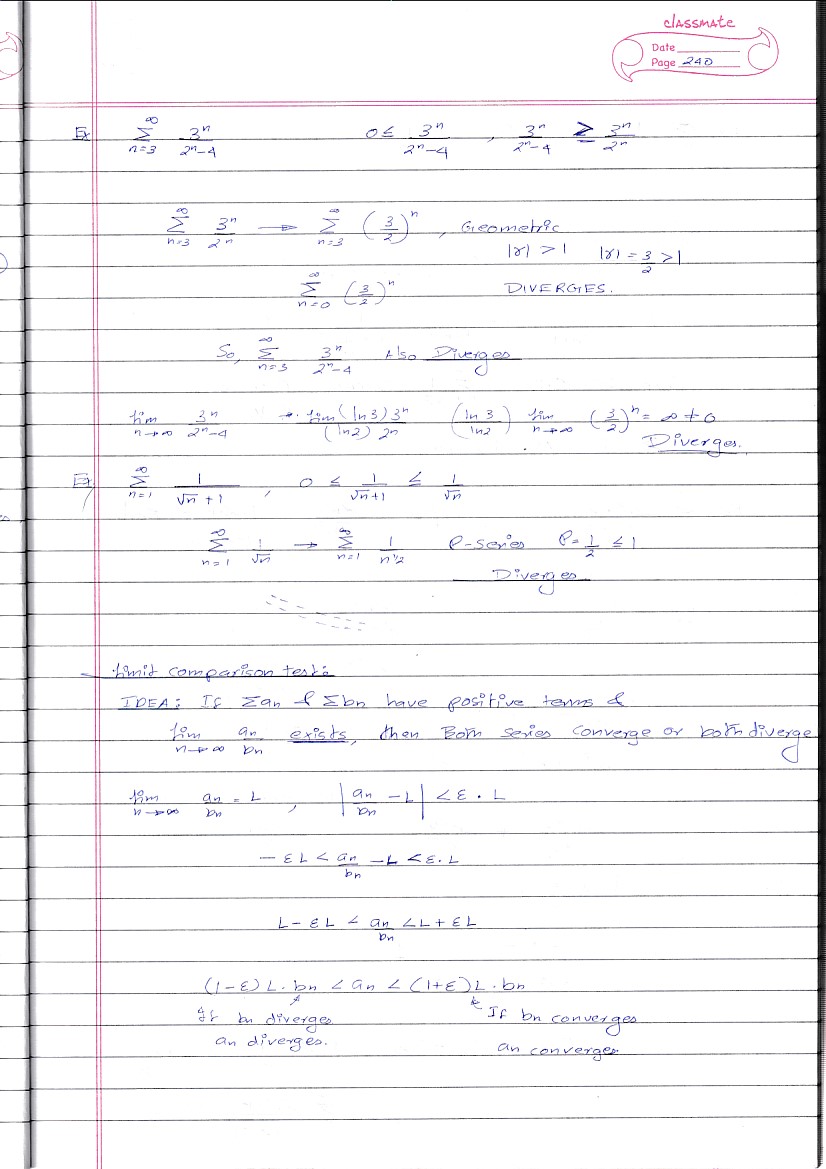 classmate
Date
Page 240
Ex ∞Σn=3 3ⁿ/2ⁿ-4 0 ≤ 3ⁿ/2ⁿ-4 , 3ⁿ/2ⁿ-4 ≥ 3ⁿ/2ⁿ
∞Σn=3 3ⁿ/2ⁿ → ∞Σn=3 (3/2)ⁿ , Geometric
|r| > 1 |r| = 3/2 > 1
∞Σn=0 (3/2)ⁿ DIVERGES.
So, ∞Σn=3 3ⁿ/2ⁿ-4 Also Diverges
lim n→∞ 3ⁿ/2ⁿ-4 → lim (ln3)3ⁿ/(ln2)2ⁿ (ln 3/ln2) lim n→∞ (3/2)ⁿ = ∞ ≠ 0
Diverges.
Ex ∞Σn=1 1/√n +1 , 0 ≤ 1/√n+1 ≤ 1/√n
∞Σn=1 1/√n → ∞Σn=1 1/n^1/2 P-series P=1/2 ≤ 1
Diverges
Limit comparison test:
IDEA: If Σan & Σbn have positive terms &
lim n→∞ an/bn exists, then Both series converge or both diverge
lim n→∞ an/bn = L , |an/bn - L| < ε . L
- εL < an/bn - L < ε. L
L - εL < an/bn < L + εL
(1-ε) L. bn < an < (1+ε) L . bn
If bn diverges If bn converges
an diverges. an converges